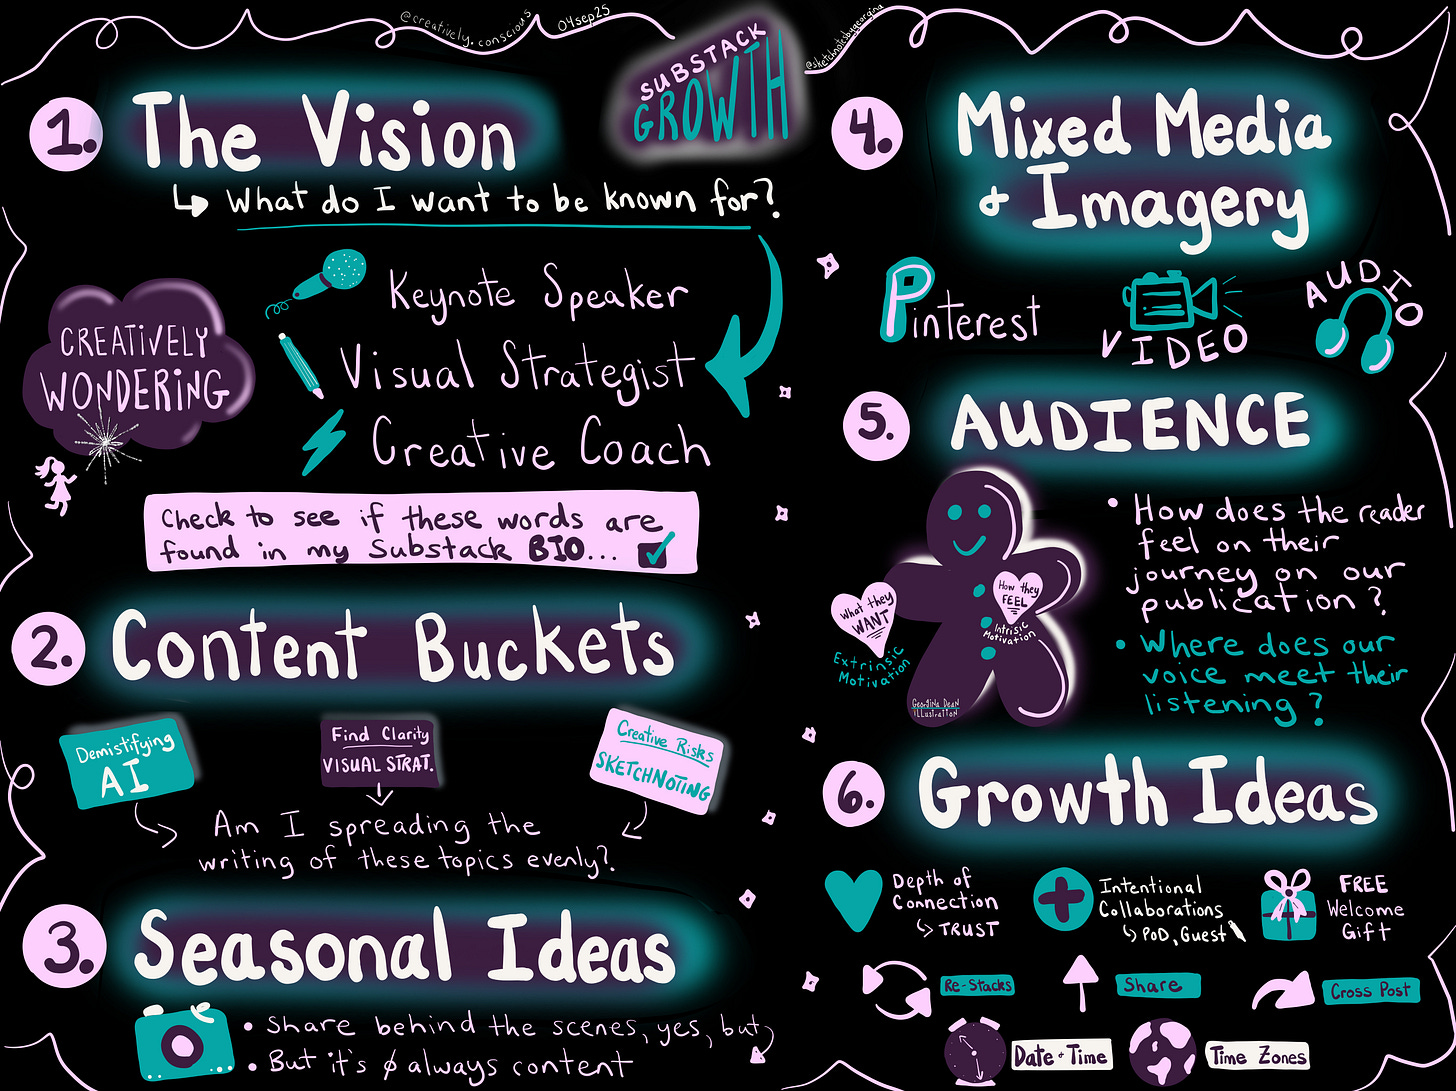 @creatively.conscious 04sep25
SUBSTACK
GROWTH
@sketchnotesbygeorgina
1. The Vision
↳ What do I want to be known for?
CREATiVELY
WONDERiNG
Keynote Speaker
Visual Strategist
Creative Coach
Check to see if these words are
found in my Substack BIO...
2. Content Buckets
Demistifying
AI
Find Clarity
VISUAL STRAT.
Creative Risks
SKETCHNOTiNG
Am I spreading the
writing of these topics evenly?
3. Seasonal Ideas
• Share behind the scenes, yes, but
• But it's ∅ always content
4. Mixed Media
+ Imagery
Pinterest
VIDEO
AUDIO
5. AUDIENCE
What they
WANT
Extrinsic
Motivation
How they
FEEL
Intrisic
Motivation
Georgina Dean
iLLustration
• How does the reader
feel on their
journey on our
publication?
• Where does our
voice meet their
listening?
6. Growth Ideas
Depth of
Connection
↳ TRUST
Intentional
Collaborations
↳ POD, Guest
FREE
Welcome
Gift
Re-Stacks
Share
Cross Post
Date + Time
Time Zones